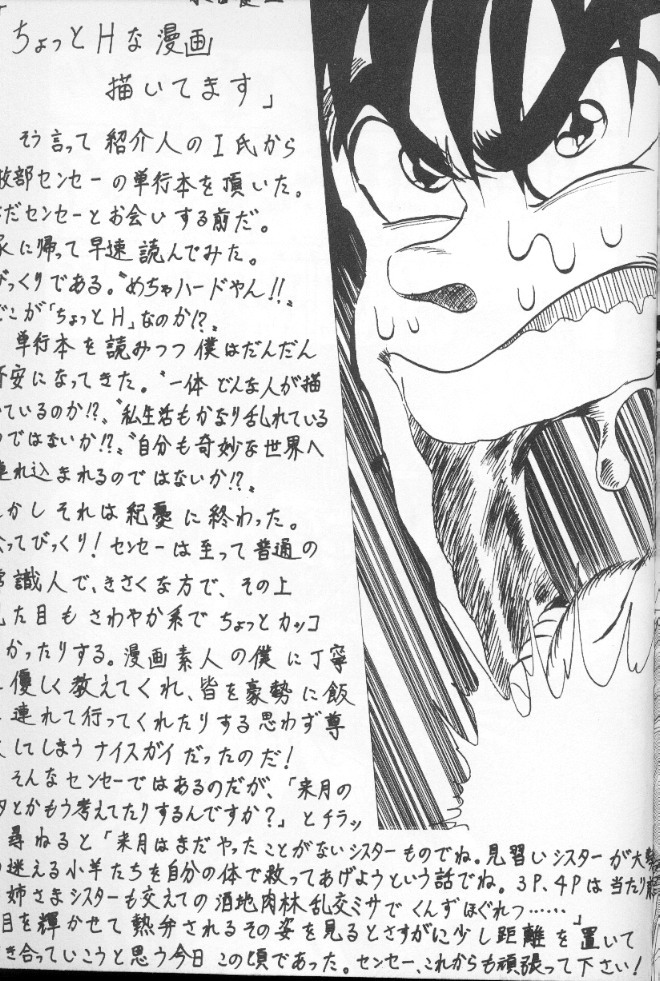 ちょっとHな漫画
描いてます」
そう言って紹介人のI氏から
部センセーの単行本を頂いた。
だセンセーとお会いする前だ。
に帰って早速読んでみた。
っくりである。〝めちゃハードやん!!〟
こが「ちょっとH」なのか!?
単行本を読みつつ僕はだんだん
安になってきた。〝一体どんな人が描
ているのか!?〟〝私生活もかなり乱れている
ではないか!?〟〝自分も奇妙な世界へ
れ込まれるのではないか!?〟
かしそれは紀憂に終わった。
ってびっくり!センセーは至って普通の
識人で、きさくな方で、その上
た目もさわやか系でちょっとカッコ
かったりする。漫画素人の僕に丁寧
優しく教えてくれ、皆を豪勢に飯
連れて行ってくれたりする思わず尊
してしまうナイスガイだったのだ!
そんなセンセーではあるのだが、「来月の
とかもう考えてたりするんですか?」とチラッ
尋ねると「来月はまだやったことがないシスターものでね。見習いシスターが大勢
迷える小羊たちを自分の体で救ってあげようという話でね。3P、4Pは当たり前
姉さまシスターも交えての酒地肉林乱交ミサでくんずほぐれつ……」
目を輝かせて熱弁されるその姿を見るとさすがに少し距離を置いて
き合っていこうと思う今日この頃であった。センセー、これからも頑張って下さい!